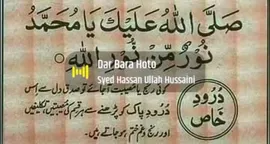 صَلَّى اللهُ عَلَيْكَ يَا مُحَمَّدُ
نُورٌ مِّنْ نُّورِ اللهِ
Dar Bara Hoto
Syed Hassan Ullah Hussaini
کوئی رنج یا مصیبت آ جائے تو صدق دل سے اس
دُرود پاک کو پڑھنے سے ہر قسم کی مصیبتیں، تکلیفیں
اور رنج و غم ختم ہو جاتے ہیں۔
دُرُودِ
خَاص